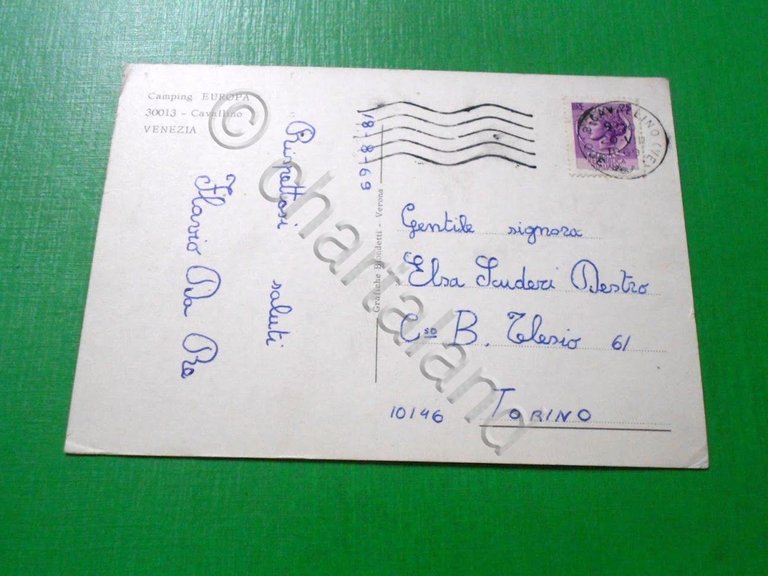 Camping EUROPA
30013 - Cavallino
VENEZIA
18-8-69
Rispettosi saluti
Flavio Da Re
Grafiche - Verona
Gentile signora
Elsa Scuderi Destro
C.so B. Telesio 61
10146 TORINO
© chartaland